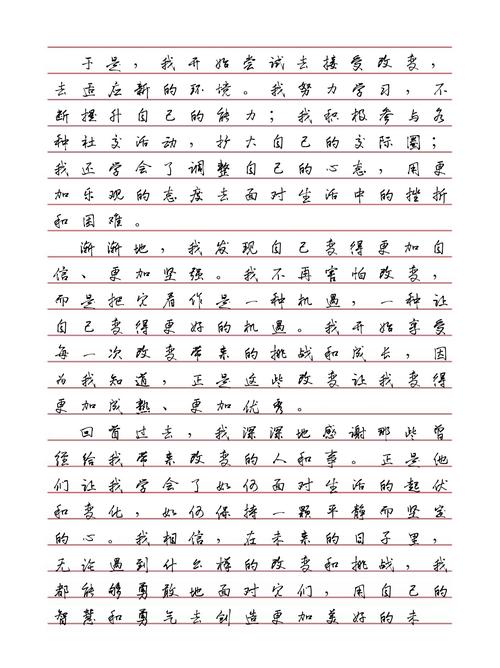 于是，我开始尝试去接受改变，
去适应新的环境。我努力学习，不
断提升自己的能力；我积极参与各
种社交活动，扩大自己的交际圈；
我还学会了调整自己的心态，用更
加乐观的态度去面对生活中的挫折
和困难。
渐渐地，我发现自己变得更加自
信、更加坚强。我不再害怕改变，
而是把它看作是一种机遇，一种让
自己变得更好的机遇。我开始享受
每一次改变带来的挑战和成长，因
为我知道，正是这些改变让我变得
更加成熟、更加优秀。
回首过去，我深深地感谢那些曾
经给我带来改变的人和事。正是他
们让我学会了如何面对生活的起伏
和变化，如何保持一颗平静而坚定
的心。我相信，在未来的日子里，
无论遇到什么样的改变和挑战，我
都能够勇敢地面对它们，用自己的
智慧和勇气去创造更加美好的未